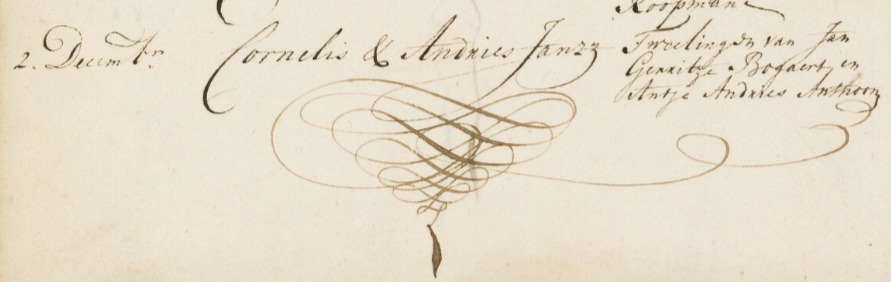 Koopmans
2. Decemb:r Cornelis & Andries Janzz Tweelingen van Jan
Gerritze Bogaert, en
Antje Andries Anthoon